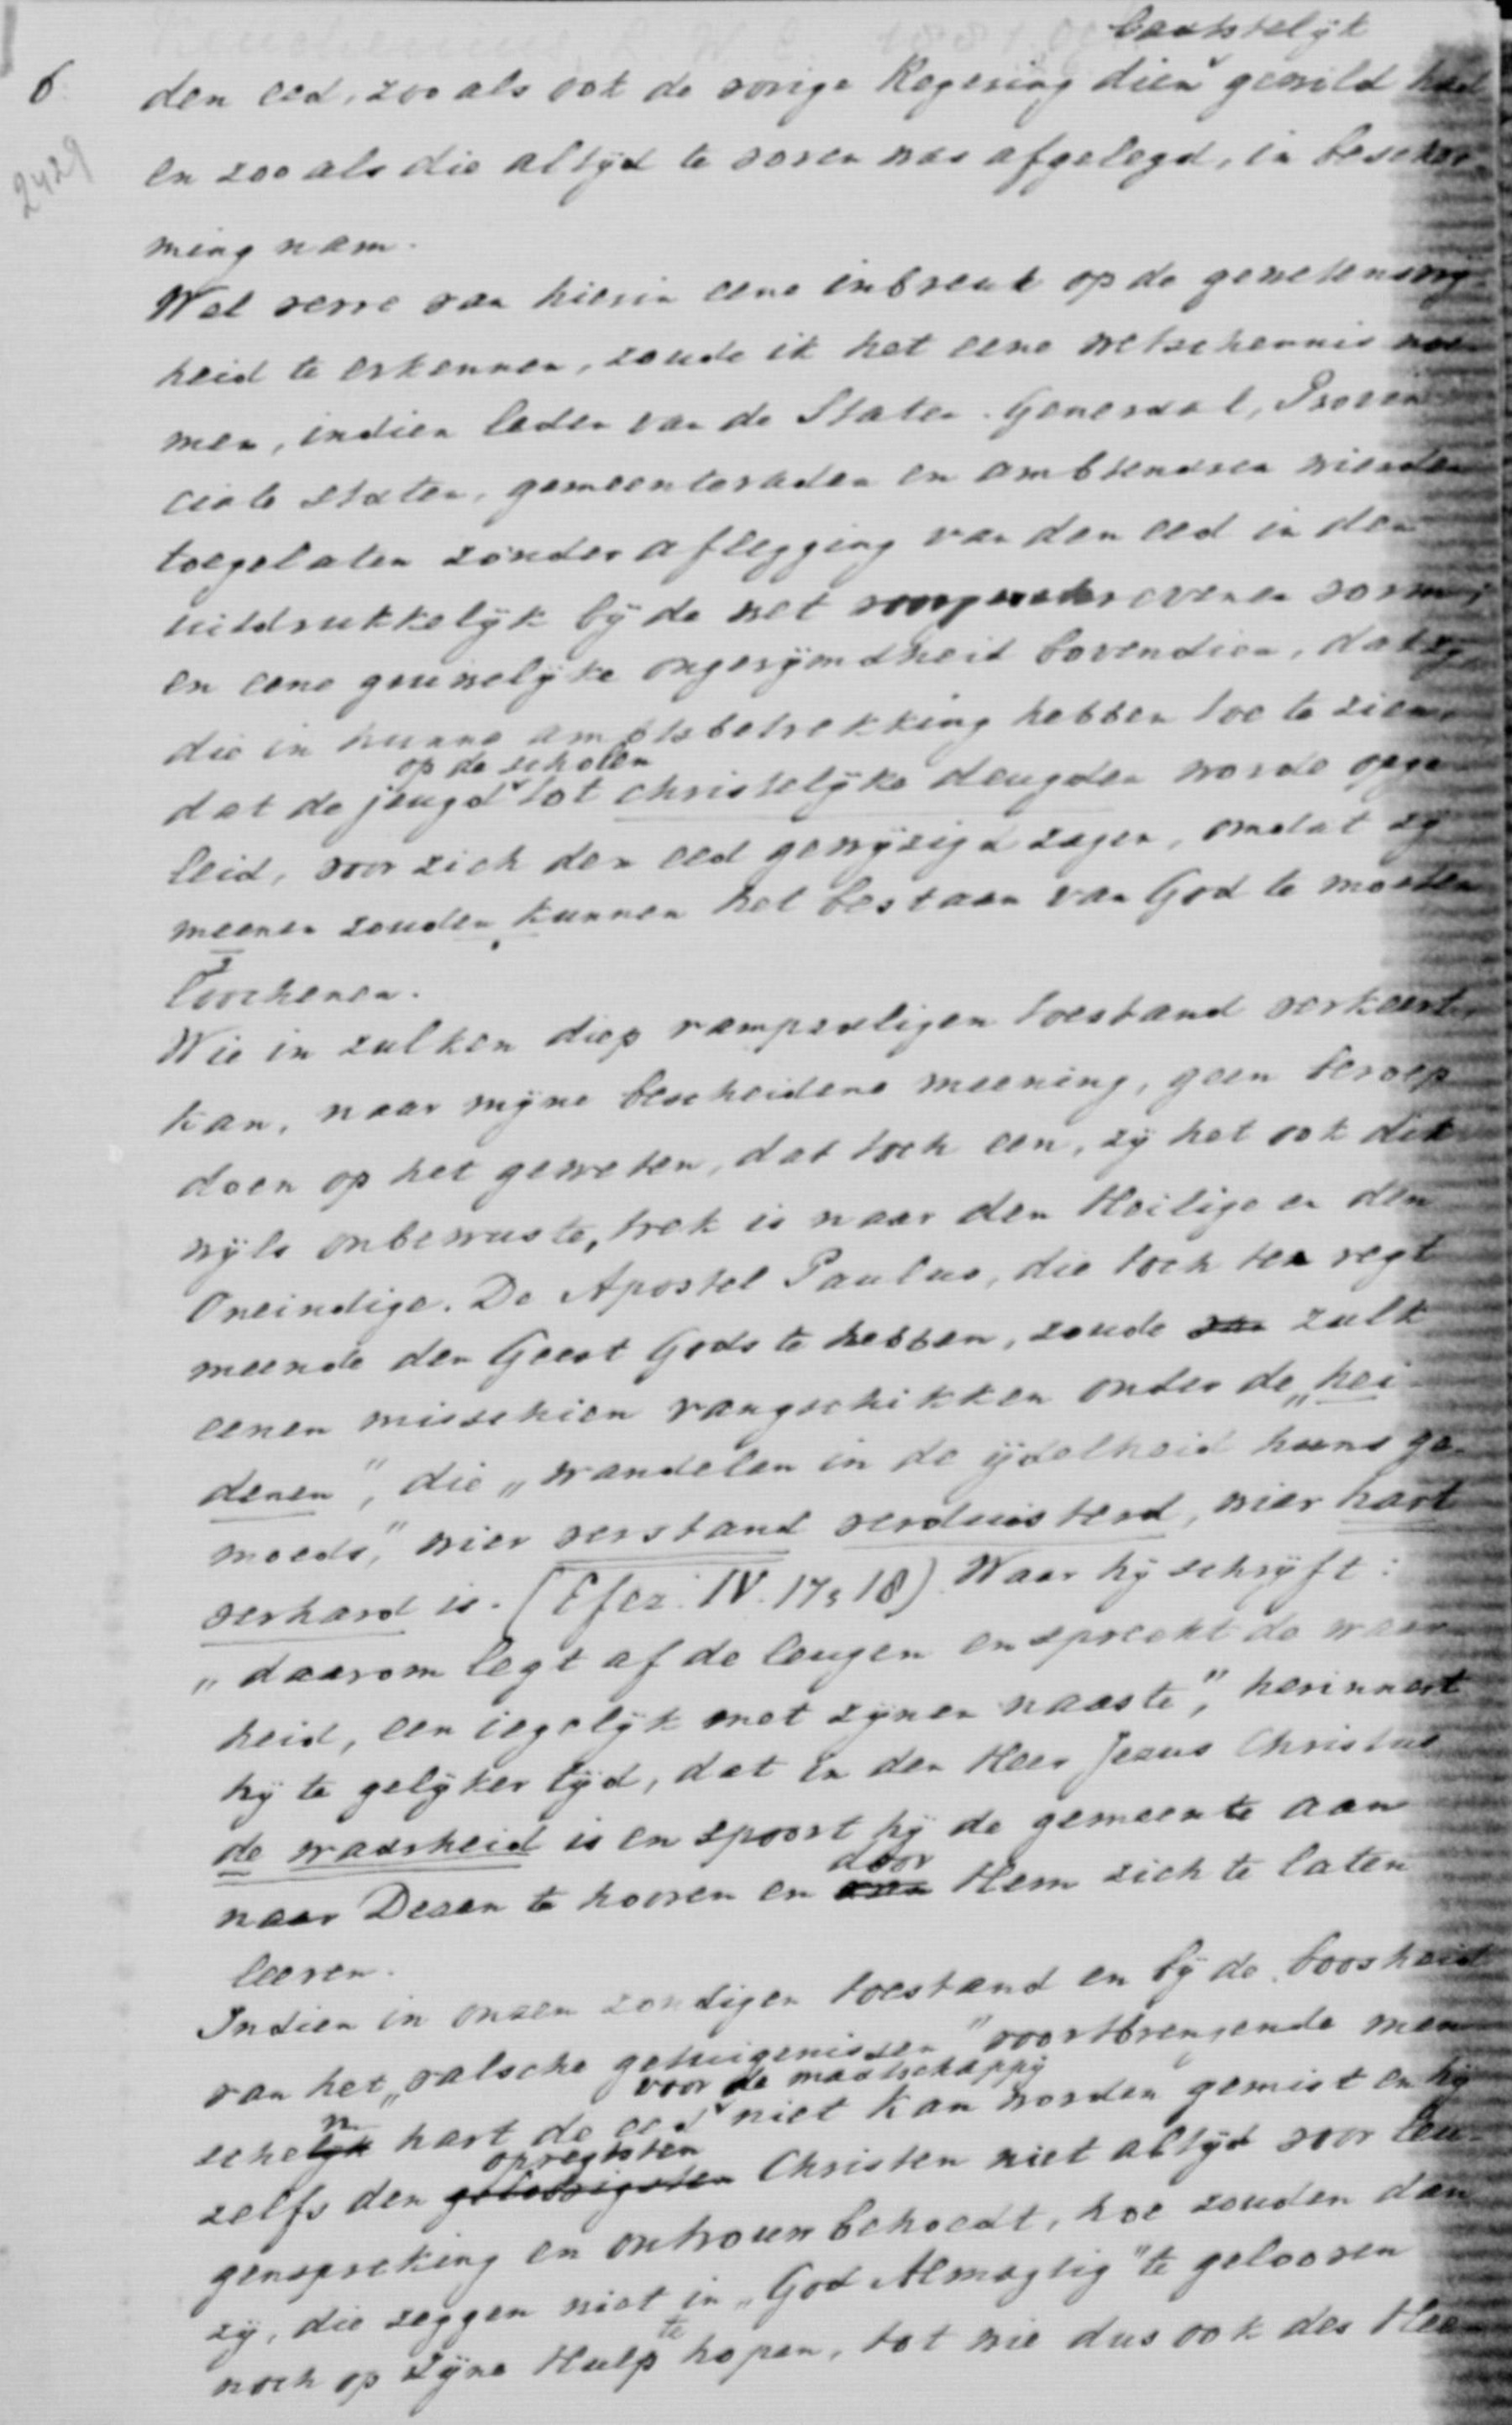 laatstelijk
6 den eed, zoo als ook de vorige Regering dien gewild had
2429
en zoo als die altijd te voren was afgelegd, in bescher-
ming nam.
Wel verre van hierin eene inbreuk op de gewetensvrij-
heid te erkennen, zoude ik het eene wetschennis noe-
men, indien leden van de Staten-Generaal, Provin-
ciale staten, gemeenteraden en ambtenaren wierden
toegelaten zonder aflegging van den eed in den
uitdrukkelijk bij de wet voorgeschrevenen vorm;
en eene gruwelijke ongerijmdheid bovendien, dat zij,
die in hunne ambtsbetrekking hebben toe te zien,
op de scholen
dat de jeugd tot christelijke deugden worde opge-
leid, voor zich den eed gewijzigd zagen, omdat zij
meenen zouden kunnen het bestaan van God te moeten
loochenen.
Wie in zulken diep rampzaligen toestand verkeert,
kan, naar mijne bescheidene meening, geen beroep
doen op het geweten, dat toch een, zij het ook dik-
wijls onbewuste, trek is naar den Heilige en den
Oneindige. De Apostel Paulus, die toch ten regt
meende den Geest Gods te hebben, zoude van zulk
eenen misschien rangschikken onder de „hei-
denen", die „wandelen in de ijdelheid huns ge-
moeds," wier verstand verduisterd, wier hart
verhard is. (Efez. IV. 17, 18) Waar hij schrijft:
„daarom legt af de leugen en spreekt de waar-
heid, een iegelijk met zijnen naaste", herinnert
hij te gelijker tijd, dat in den Heer Jezus Christus
de waarheid is en spoort hij de gemeente aan
door
naar Dezen te hooren en van Hem zich te laten
leeren.
Indien in onzen zondigen toestand en bij de boosheid
van het „valsche getuigenissen" voortbrengende men-
voor de maatschappij
schelijk n hart de eed niet kan worden gemist en hij
opregtsten
zelfs den geloovigsten Christen niet altijd voor leu-
genspreking en ontrouw behoedt, hoe zouden dan
zij, die zeggen niet in „God Almagtig" te gelooven
te
noch op Zijne Hulp hopen, tot wie dus ook des Hee-